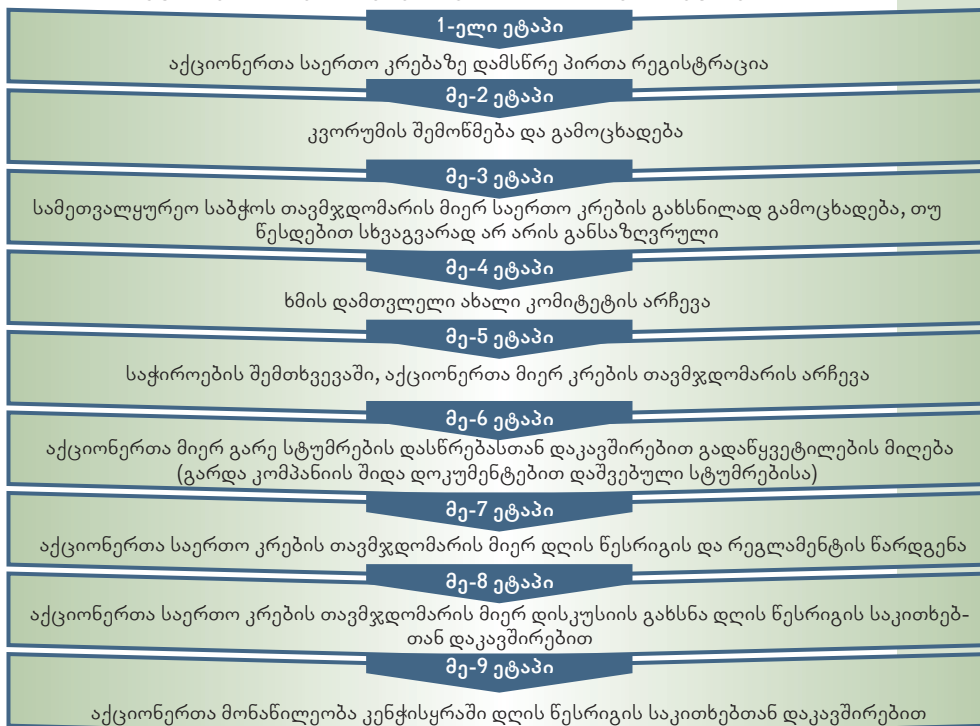 1-ელი ეტაპი
აქციონერთა საერთო კრებაზე დამსწრე პირთა რეგისტრაცია
მე-2 ეტაპი
კვორუმის შემოწმება და გამოცხადება
მე-3 ეტაპი
სამეთვალყურეო საბჭოს თავმჯდომარის მიერ საერთო კრების გახსნილად გამოცხადება, თუ
წესდებით სხვაგვარად არ არის განსაზღვრული
მე-4 ეტაპი
ხმის დამთვლელი ახალი კომიტეტის არჩევა
მე-5 ეტაპი
საჭიროების შემთხვევაში, აქციონერთა მიერ კრების თავმჯდომარის არჩევა
მე-6 ეტაპი
აქციონერთა მიერ გარე სტუმრების დასწრებასთან დაკავშირებით გადაწყვეტილების მიღება
(გარდა კომპანიის შიდა დოკუმენტებით დაშვებული სტუმრებისა)
მე-7 ეტაპი
აქციონერთა საერთო კრების თავმჯდომარის მიერ დღის წესრიგის და რეგლამენტის წარდგენა
მე-8 ეტაპი
აქციონერთა საერთო კრების თავმჯდომარის მიერ დისკუსიის გახსნა დღის წესრიგის საკითხებ-
თან დაკავშირებით
მე-9 ეტაპი
აქციონერთა მონაწილეობა კენჭისყრაში დღის წესრიგის საკითხებთან დაკავშირებით